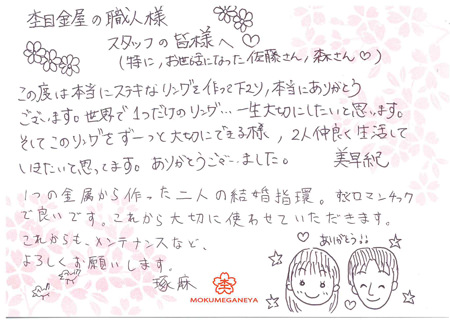 杢目金屋の職人様
スタッフの皆様へ♡
(特に,お世話になった佐藤さん,森さん♡)
この度は本当にステキなリングを作って下さり,本当にありがとう
ございます。世界で1つだけのリング…一生大切にしたいと思います。
そしてこのリングをずーっと大切にできる様,2人仲良く生活して
いきたいと思ってます。ありがとうございました。 美早紀
1つの金属から作った二人の結婚指環。すごくロマンチック
で良いです。これから大切に使わせていただきます。
これからも、メンテナンスなど、
よろしくお願いします。
琢麻
ありがとう!!
MOKUMEGANEYA